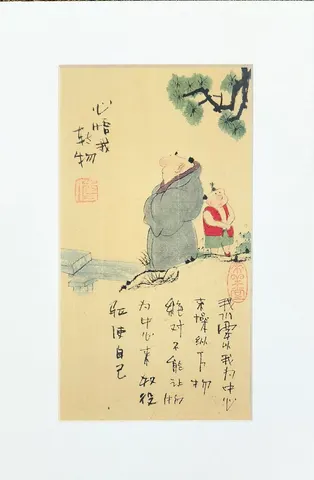 心我
物
我们要以我为中心
来操纵万物
绝对不能让物
为中心来奴役
驱使自己